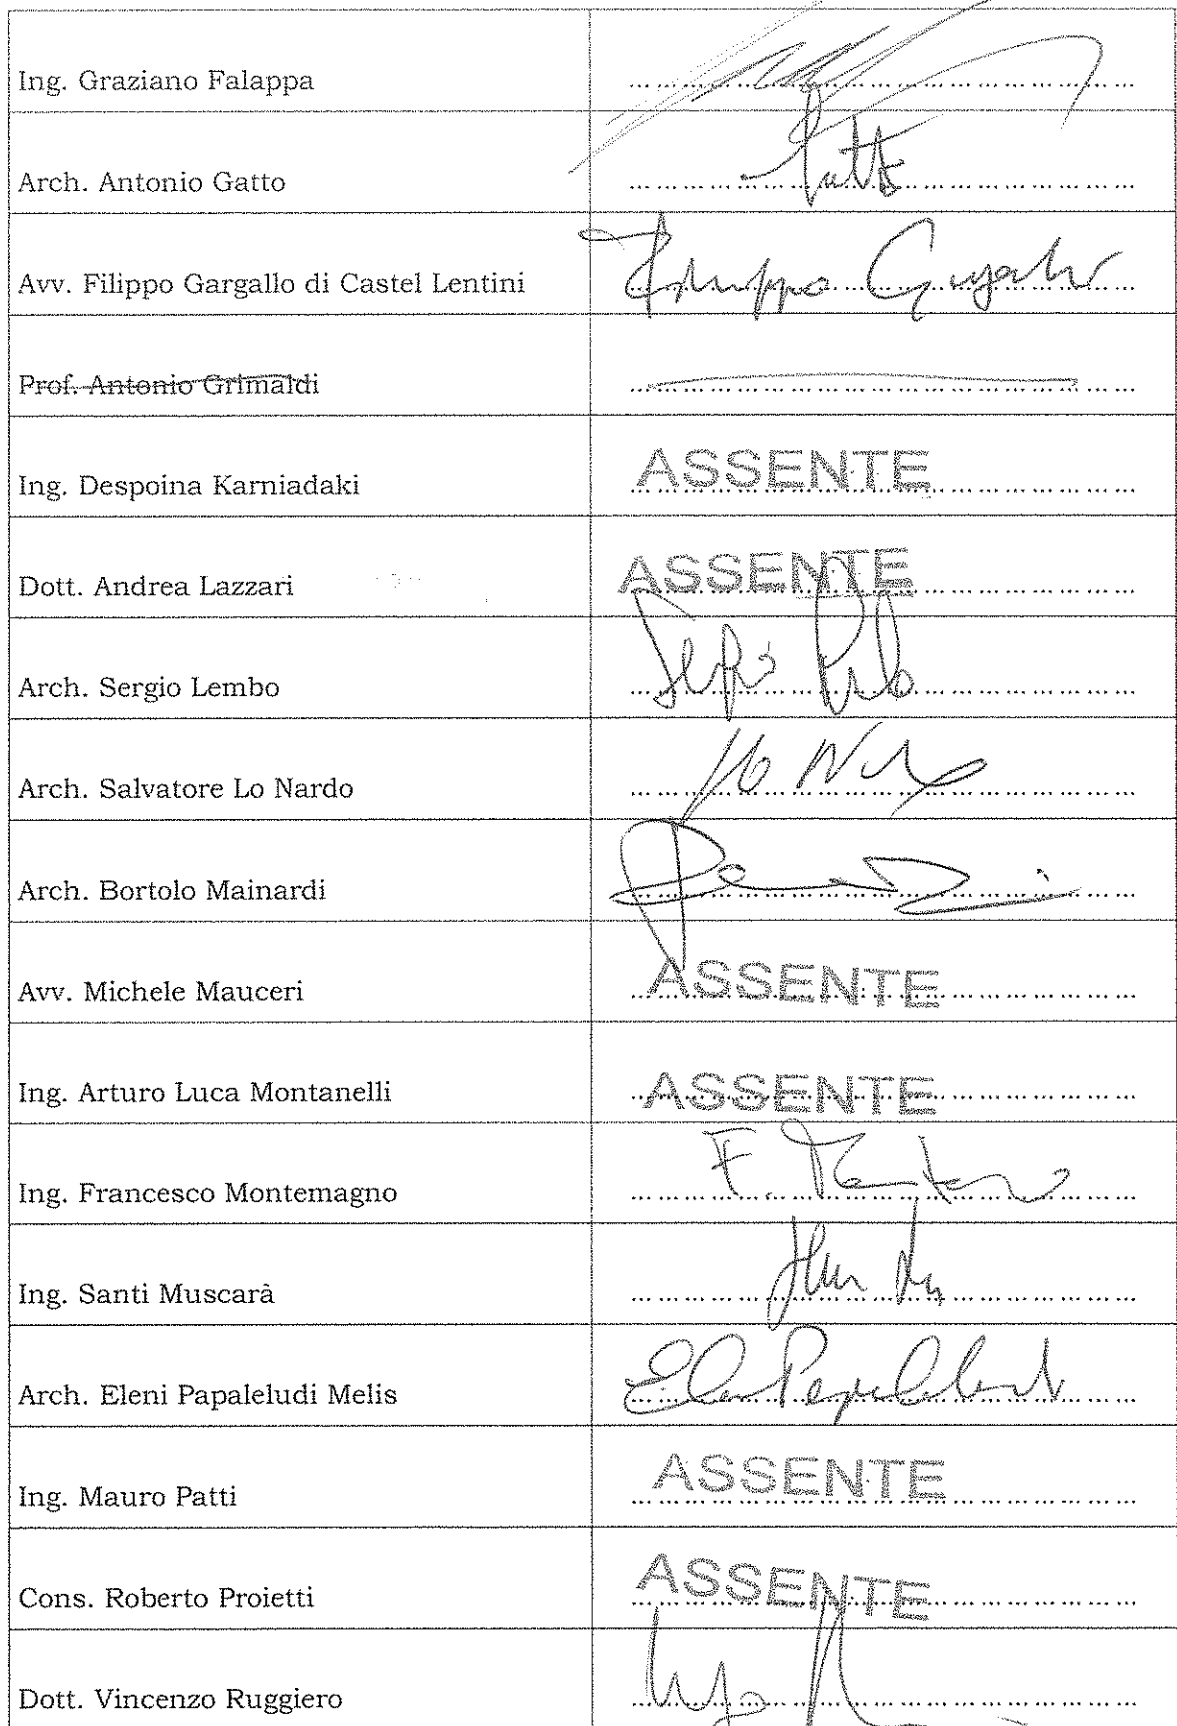 Ing. Graziano Falappa
Arch. Antonio Gatto
Gatto
Avv. Filippo Gargallo di Castel Lentini
Filippo Gargallo
Prof. Antonio Grimaldi
Ing. Despoina Karniadaki ASSENTE
Dott. Andrea Lazzari ASSENTE
Arch. Sergio Lembo
Arch. Salvatore Lo Nardo
Arch. Bortolo Mainardi
Avv. Michele Mauceri ASSENTE
Ing. Arturo Luca Montanelli ASSENTE
Ing. Francesco Montemagno
Ing. Santi Muscarà
Arch. Eleni Papaleludi Melis
Ing. Mauro Patti ASSENTE
Cons. Roberto Proietti ASSENTE
Dott. Vincenzo Ruggiero